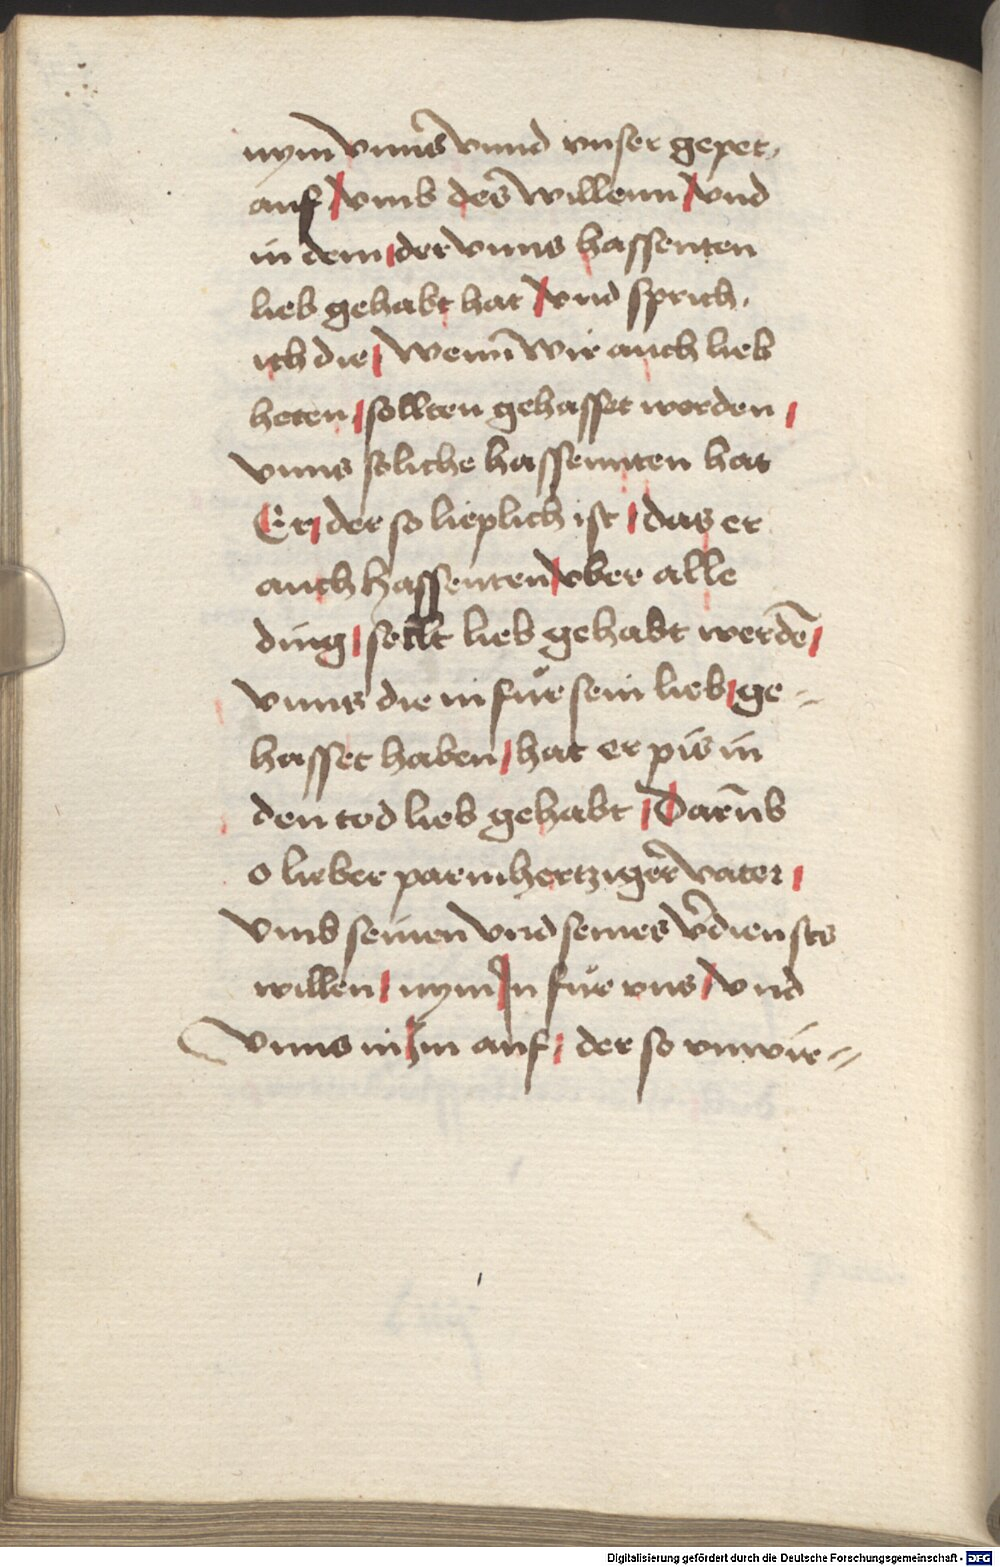 nym vnns vnnd vnser gepet,
auf / vmb des willenn / vnd
in dem / der vnns hassenten
lieb gehabt hat / vnd sprich,
ich die / wenn wir auch lieb
heten / sollten gehasset werden /
vnns soliche hassennten hat
Er / der so lieplich ist / das er
auch hassenten / vber alle
ding / sollt lieb gehabt werdē /
vnns die in für sein lieb / ge=
hasset haben / hat er pis in
den tod lieb gehabt / Darūb
o lieber parmhertziger vater /
vmb seinen vnd seines v̄diensts
willen / nym In für vns / vnd
vnns in Im auf / der so vnwir=
Digitalisierung gefördert durch die Deutsche Forschungsgemeinschaft - DFG